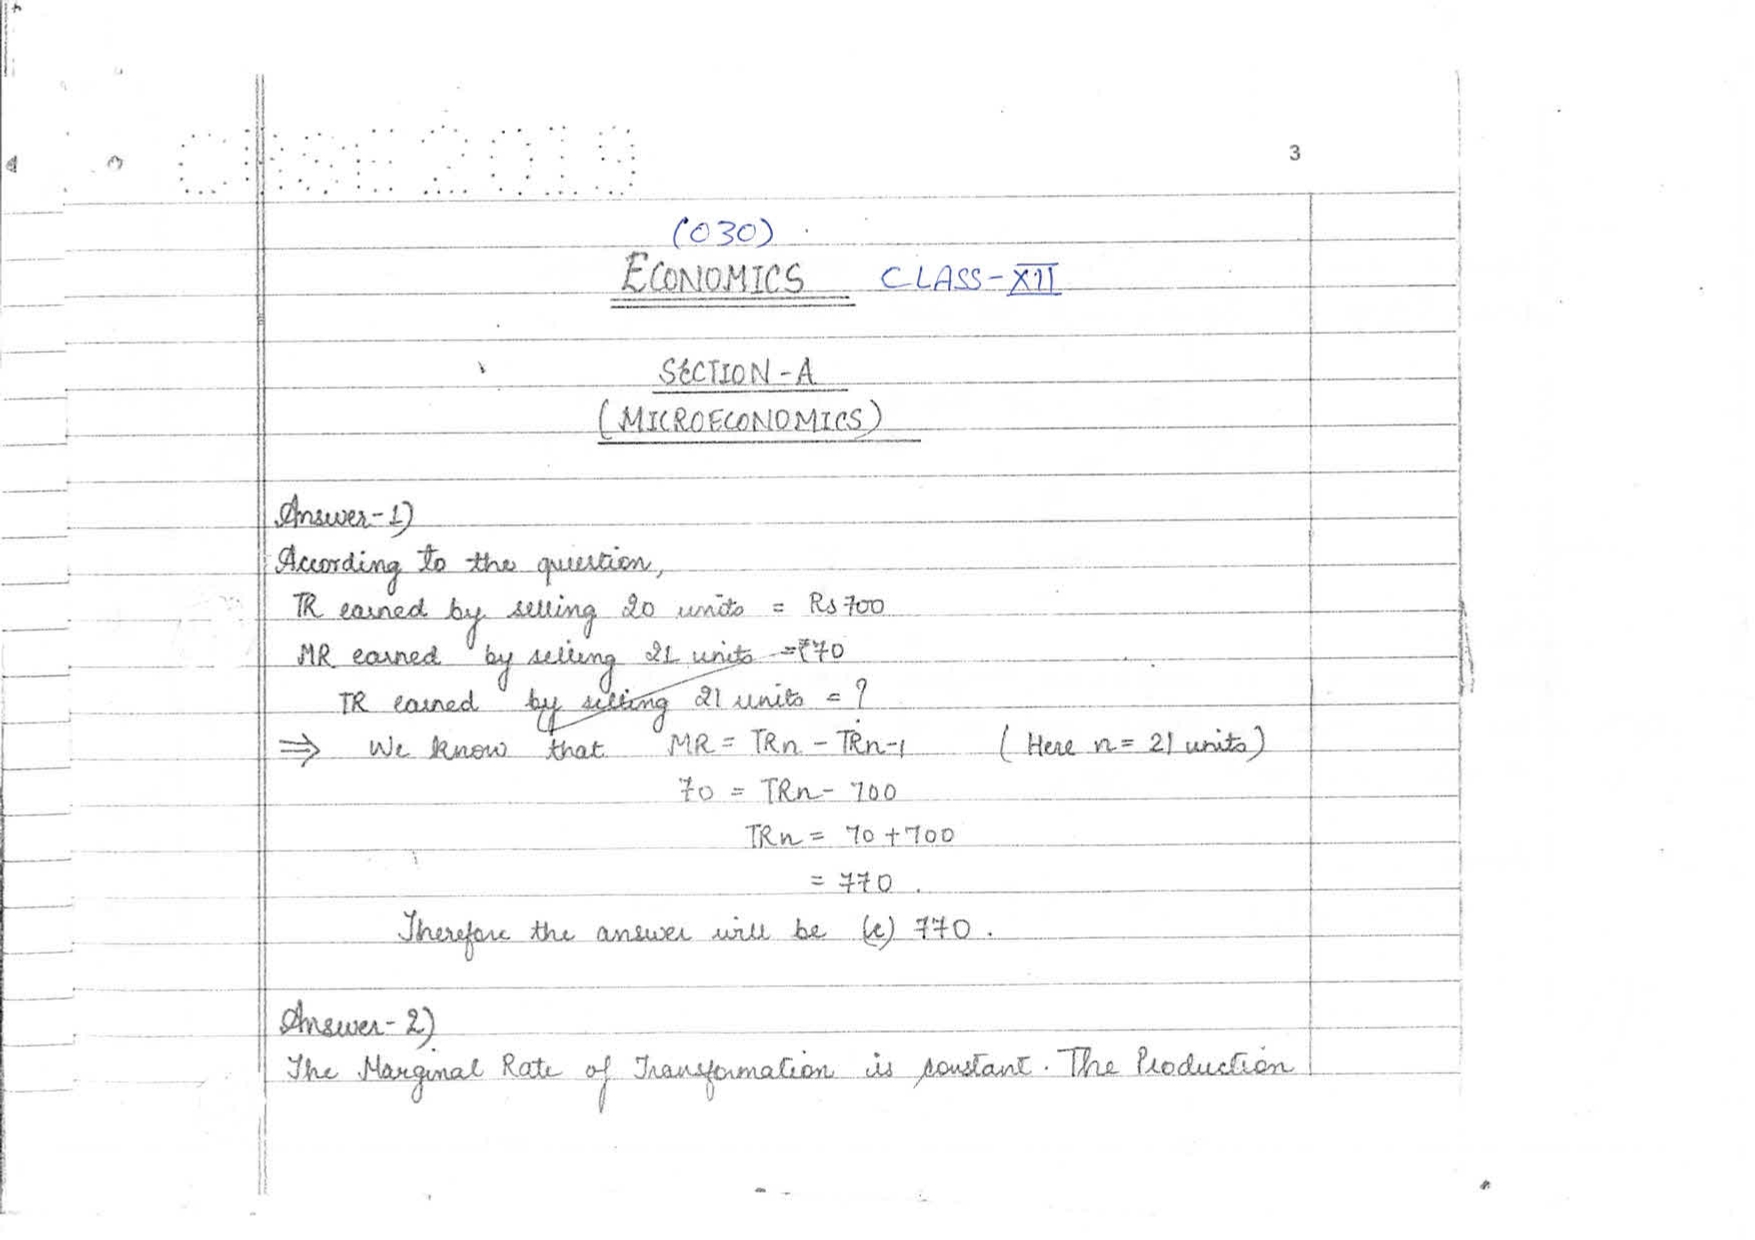 CBSE 2019
3
(030)
ECONOMICS CLASS-XII
SECTION-A
(MICROECONOMICS)
Answer-1)
According to the question,
TR earned by selling 20 units = Rs 700
MR earned by selling 21 units = ₹70
TR earned by selling 21 units = ?
⇒ We know that MR = TRn - TRn-1 (Here n = 21 units)
70 = TRn - 700
TRn = 70 + 700
= 770.
Therefore the answer will be (c) 770.
Answer-2)
The Marginal Rate of Transformation is constant. The Production